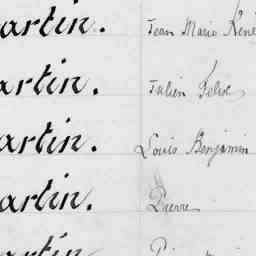 artin. Jean Marie René
artin. Julien Felix
artin. Louis Benjamin
artin. Pierre
artin